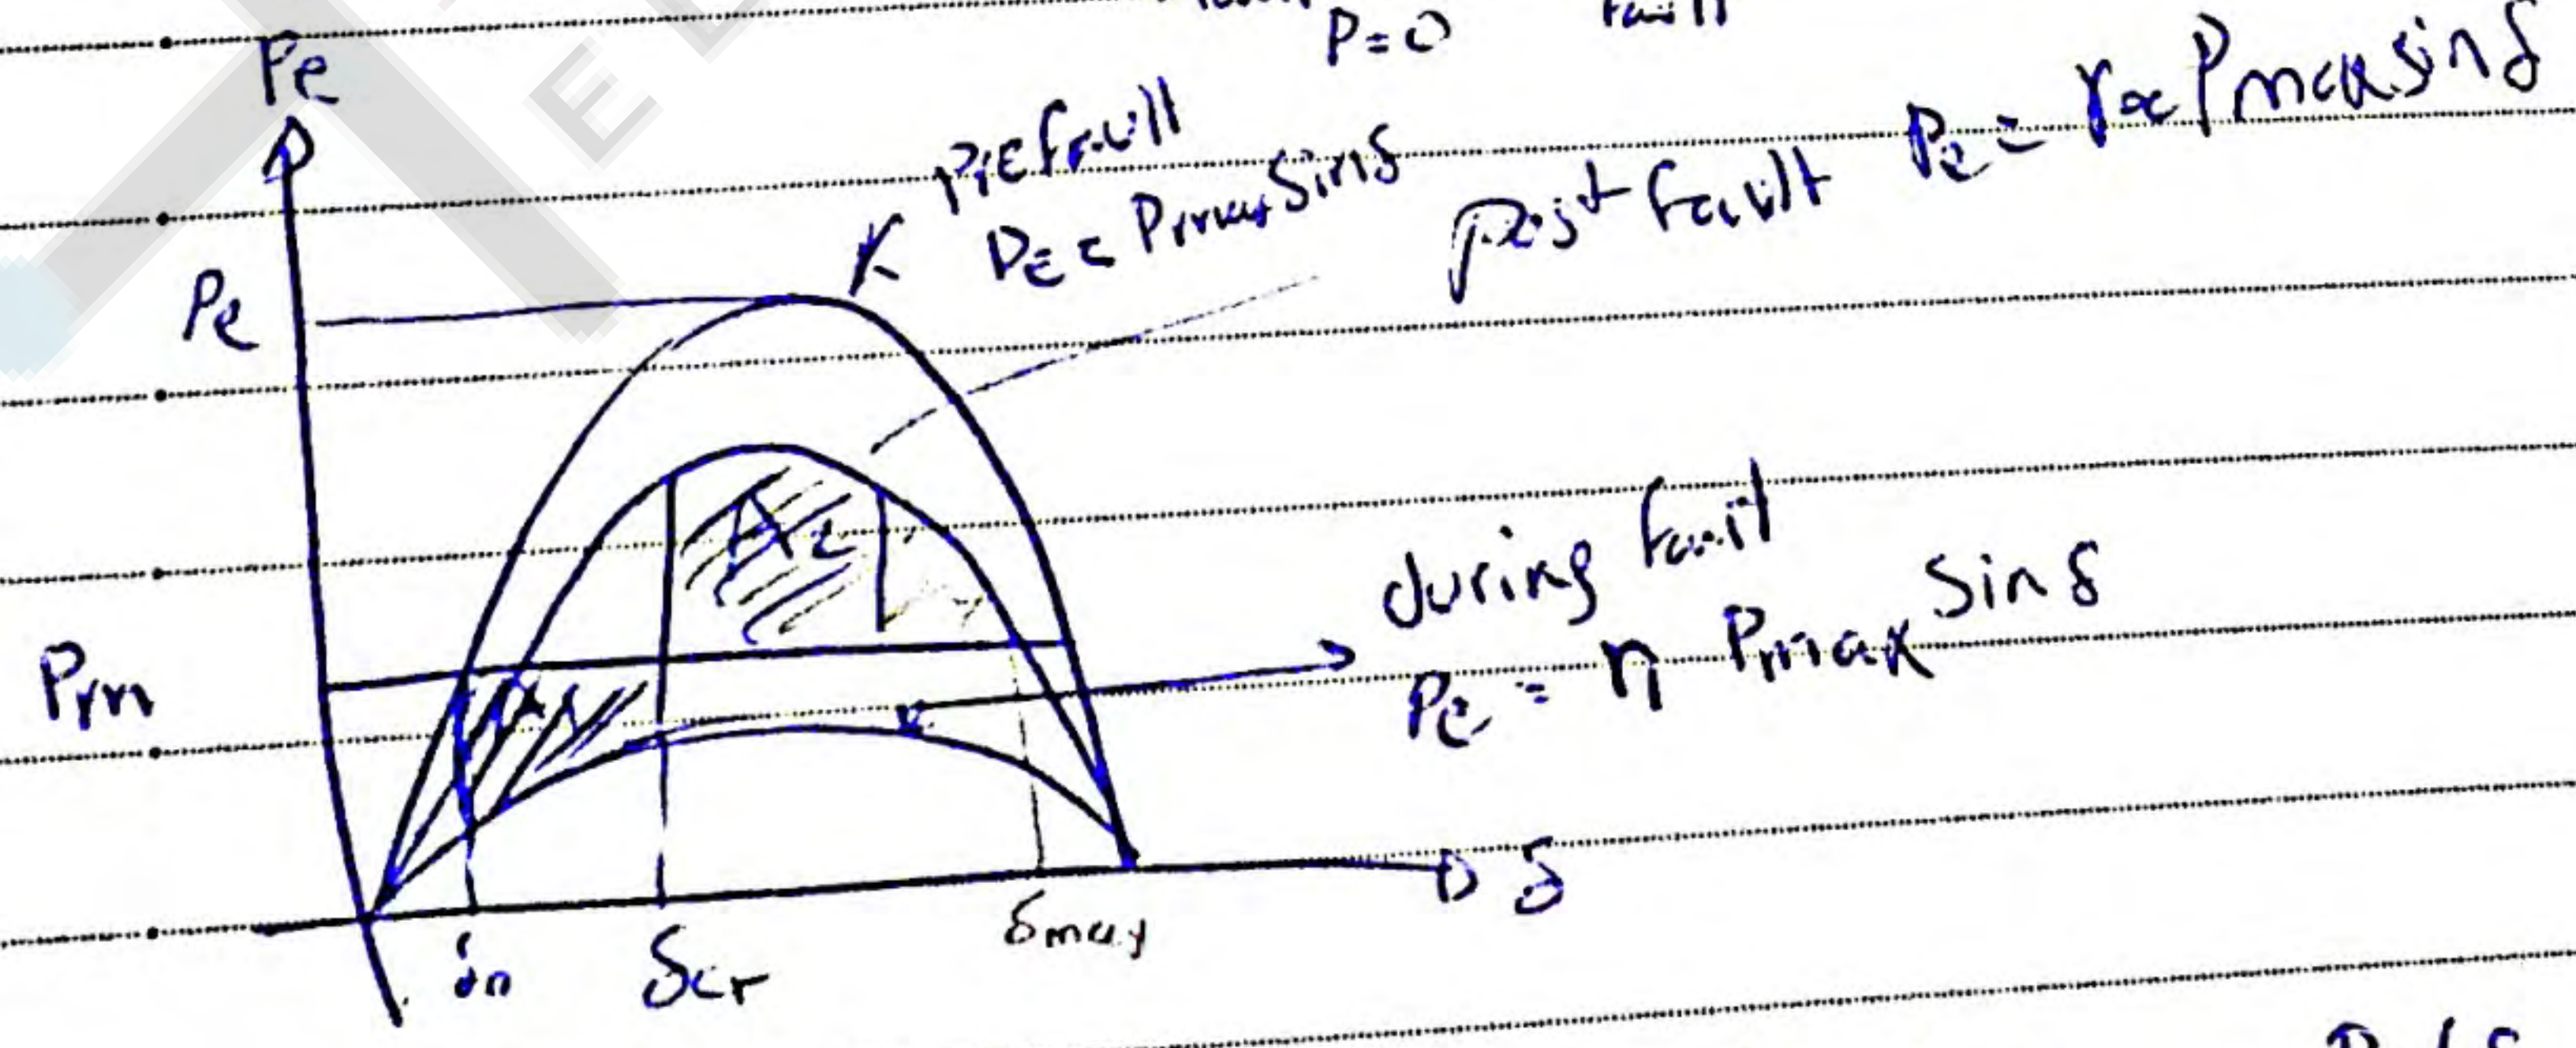 P=0
Pe
prefault
Pe = Pmax Sinδ
post fault Pe = r∝ Pmax sinδ
Pe
A2
during fault
Pe = η Pmax Sinδ
Pm
A1
δ
δo
δcr
δmax